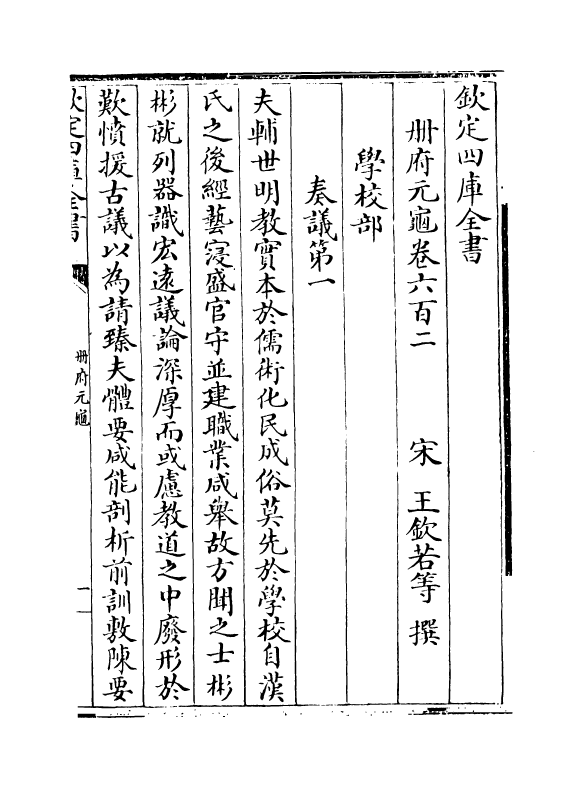 欽定四庫全書
冊府元龜卷六百二
宋 王欽若等 撰
學校部
奏議第一
夫輔世明教實本於儒術化民成俗莫先於學校自漢
氏之後經藝寖盛官守並建職業咸舉故方聞之士彬
彬就列器識宏遠議論深厚而或慮教道之中廢形於
歎憤援古議以為請臻夫體要咸能剖析前訓敷陳要
欽定四庫全書
冊府元龜
一